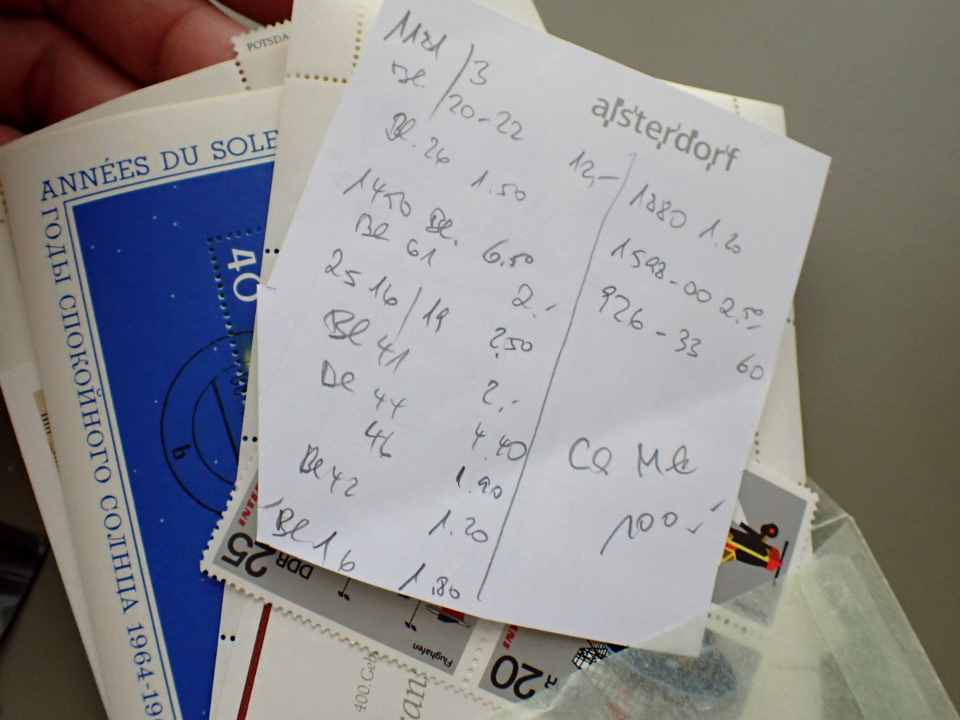 POTSDA
ANNÉES DU SOLE
ГОДЫ СПОКОЙНОГО СОЛНЦА 1964-19
40
b
alsterdorf
1121/3
Bl. 20-22 12,-
Bl. 26 1.50
1450 Bl. 6.50
Bl 61 2.-
2516/19 2,50
Bl 41 2,-
Bl 44 4.40
46 1.90
Bl 42 1.20
Bl 16 1.80
1880 1.20
1598-00 2.50
926-33 60
Ca Mk
100,-
25
DDR
Flughafen
20
400.Geb